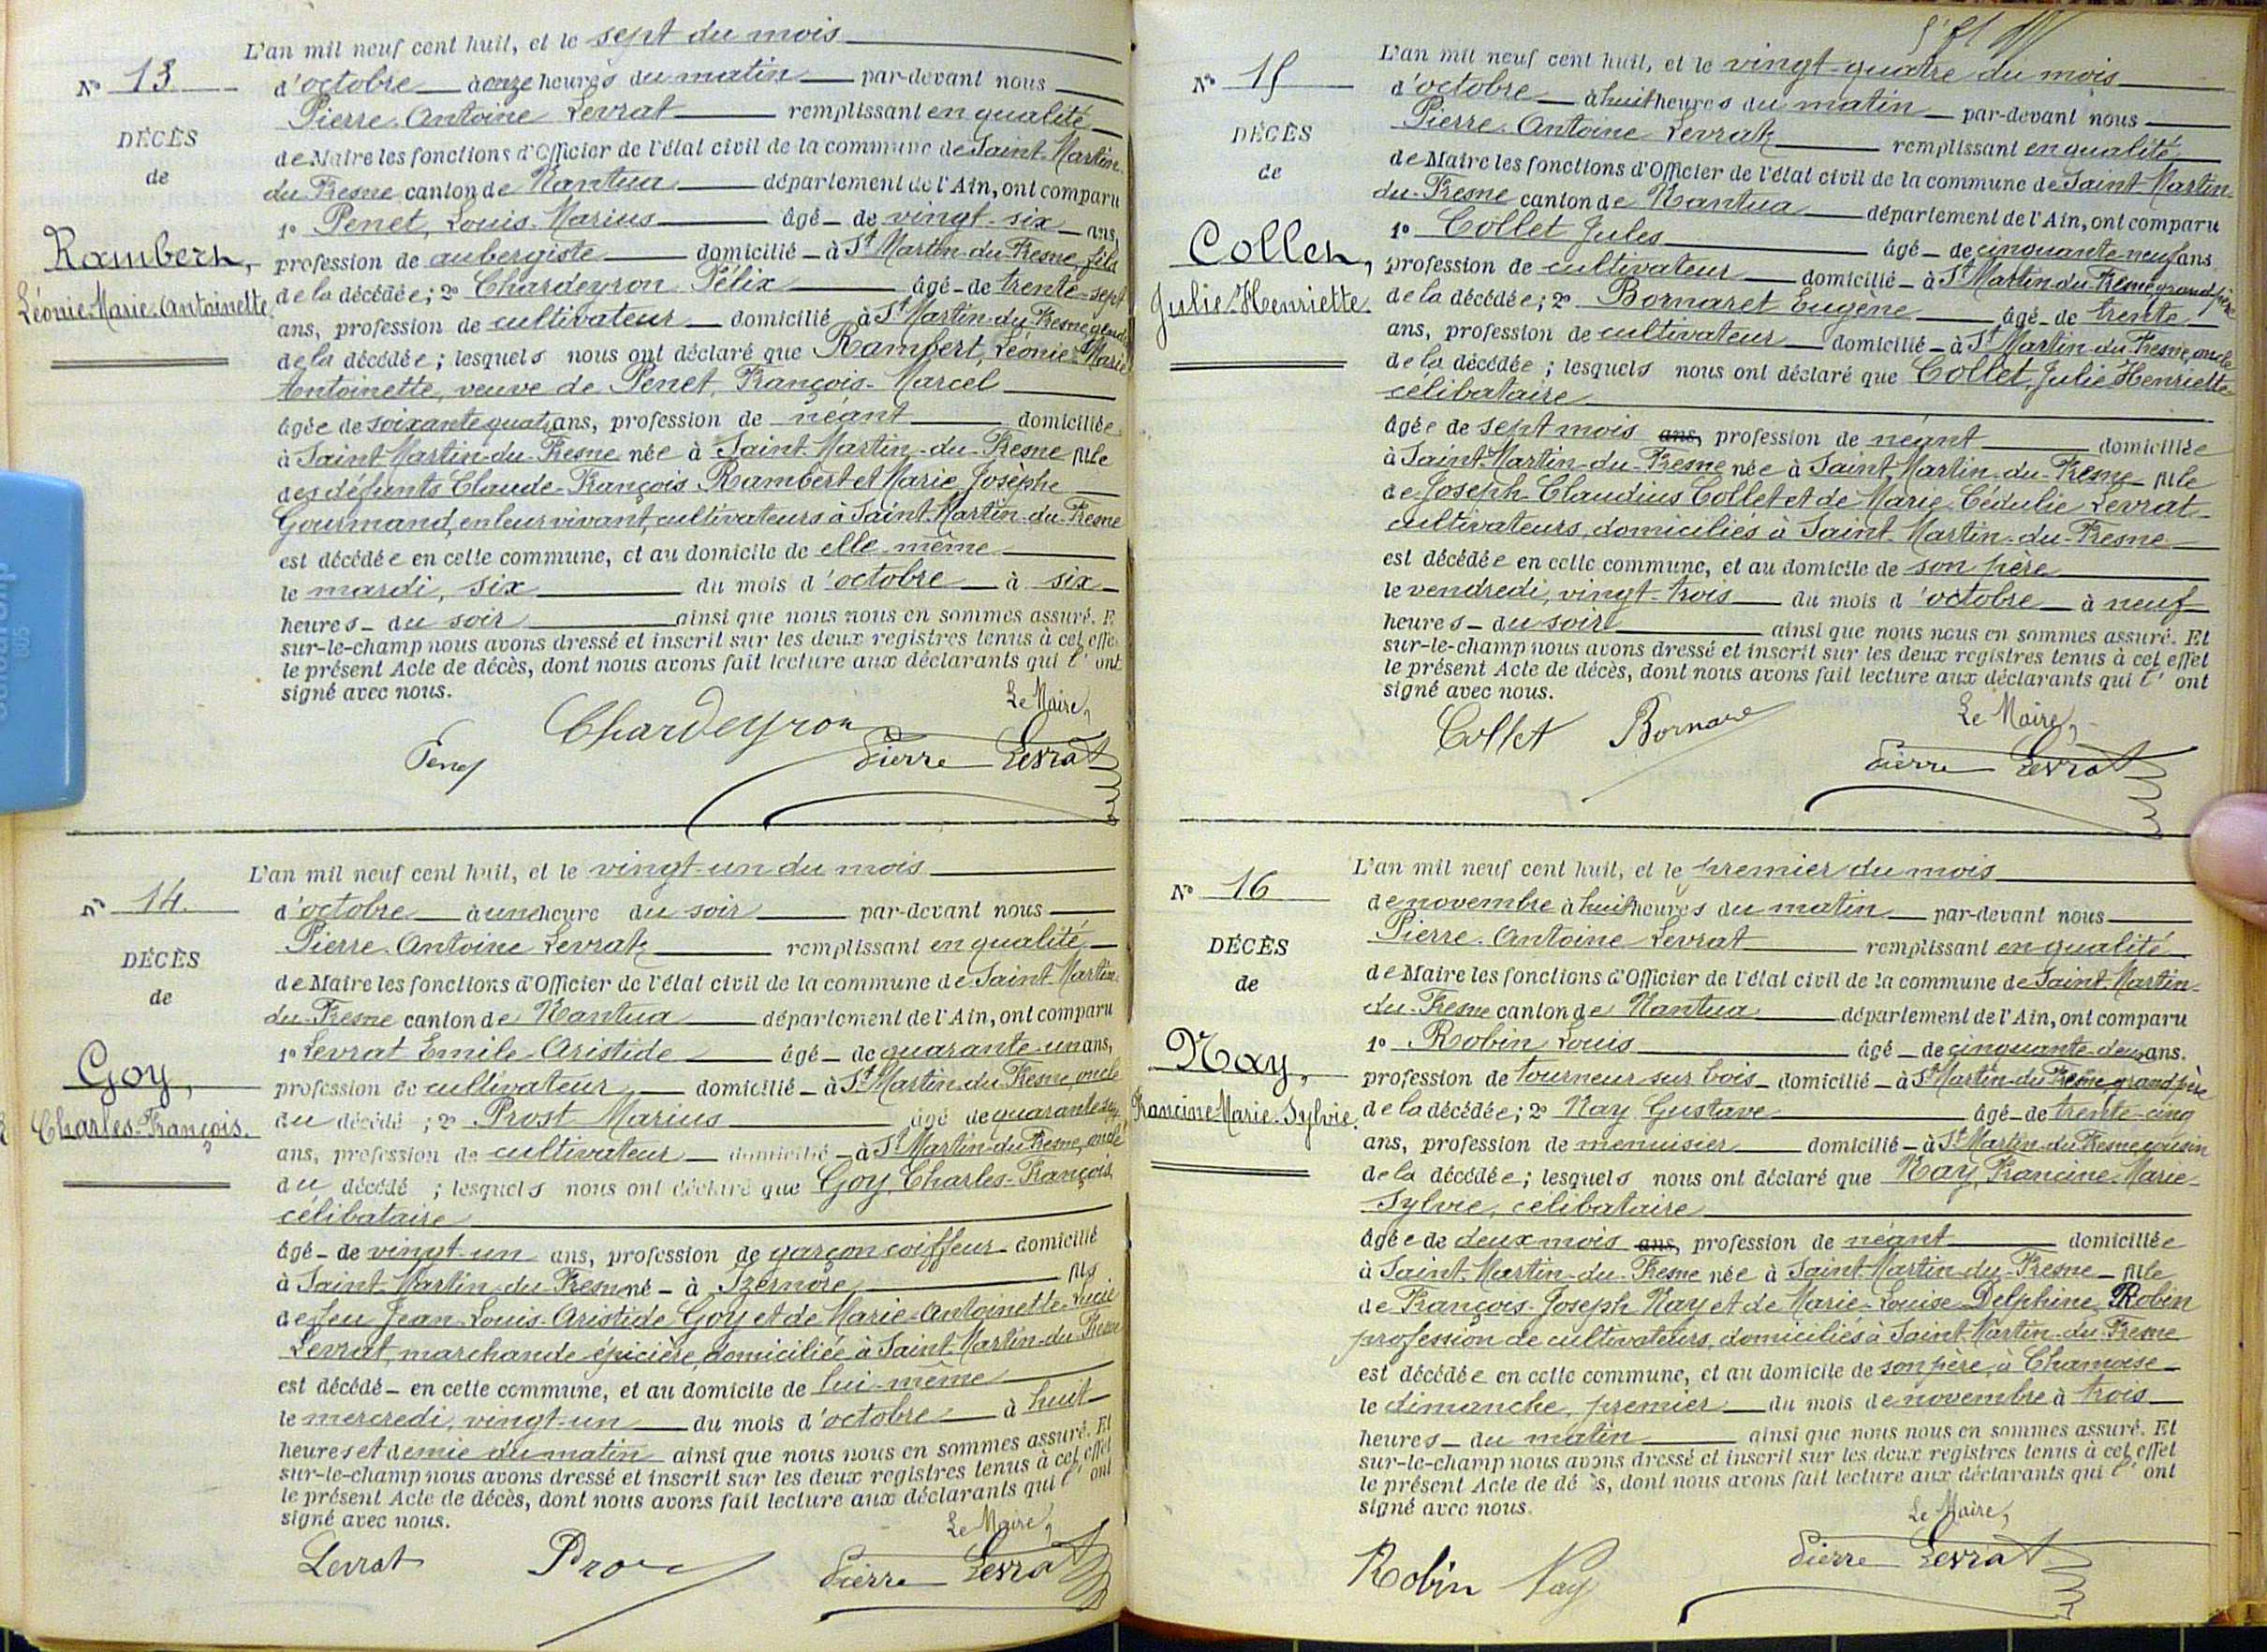 L'an mil neuf cent huit, et le sept du mois
N° 13.
d'octobre à onze heures du matin par-devant nous
Pierre-Antoine Levrat remplissant en qualité
DÉCÈS
de Maire les fonctions d'Officier de l'état civil de la commune de Saint-Martin-
de
du-Fresne canton de Nantua département de l'Ain, ont comparu
1° Penet, Louis-Marius âgé de vingt-six ans,
Rambert,
profession de aubergiste domicilié à St Martin-du-Fresne, fils
Léonie-Marie-Antoinette.
de la décédée; 2° Chardeyron Félix âgé de trente-sept
ans, profession de cultivateur domicilié à St Martin-du-Fresne gendre
de la décédée; lesquels nous ont déclaré que Rambert, Léonie-Marie
Antoinette, veuve de Penet, François-Marcel
âgée de soixante quatre ans, profession de néant domiciliée
à Saint-Martin-du-Fresne née à Saint-Martin-du-Fresne fille
des défunts Claude-François Rambert et Marie Josèphe
Gourmand, en leur vivant, cultivateurs à Saint-Martin-du-Fresne
est décédée en cette commune, et au domicile de elle-même
le mardi, six du mois d'octobre à six
heures du soir ainsi que nous nous en sommes assuré. E
sur-le-champ nous avons dressé et inscrit sur les deux registres tenus à cet effe
le présent Acte de décès, dont nous avons fait lecture aux déclarants qui l'ont
signé avec nous.
Le Maire,
Chardeyron
Penet
Pierre Levrat
L'an mil neuf cent huit, et le vingt-un du mois
N° 14.
d'octobre à une heure du soir par-devant nous
Pierre-Antoine Levrat remplissant en qualité
DÉCÈS
de Maire les fonctions d'Officier de l'état civil de la commune de Saint-Martin-
de
du-Fresne canton de Nantua département de l'Ain, ont comparu
1° Levrat Emile-Aristide âgé de quarante-un ans,
Goy,
profession de cultivateur domicilié à St Martin-du-Fresne, oncle
Charles-François.
du décédé; 2° Prost Marius âgé de quarante-
ans, profession de cultivateur domicilié à St Martin-du-Fresne, oncle
du décédé; lesquels nous ont déclaré que Goy, Charles-François,
célibataire
âgé de vingt-un ans, profession de garçon coiffeur domicilié
à Saint-Martin-du-Fresne né à Izernore fils
de feu Jean-Louis-Aristide Goy et de Marie-Antoinette-Lucie
Levrat, marchande épicière, domiciliée à Saint-Martin-du-Fresne
est décédé en cette commune, et au domicile de lui-même
le mercredi, vingt-un du mois d'octobre à huit
heures et demie du matin ainsi que nous nous en sommes assuré. Et
sur-le-champ nous avons dressé et inscrit sur les deux registres tenus à cet effet
le présent Acte de décès, dont nous avons fait lecture aux déclarants qui l'ont
signé avec nous.
Le Maire,
Levrat
Pierre Levrat
L'an mil neuf cent huit, et le vingt-quatre du mois
N° 15
d'octobre à huit heures du matin par-devant nous
Pierre-Antoine Levrat remplissant en qualité
DÉCÈS
de Maire les fonctions d'Officier de l'état civil de la commune de Saint-Martin-
de
du-Fresne canton de Nantua département de l'Ain, ont comparu
1° Collet Jules âgé de cinquante-neuf ans
Collet,
profession de cultivateur domicilié à St Martin-du-Fresne grand père
Julie-Henriette.
de la décédée; 2° Bornaret Eugène âgé de trente
ans, profession de cultivateur domicilié à St Martin-du-Fresne, oncle
de la décédée; lesquels nous ont déclaré que Collet, Julie Henriette
célibataire
âgée de sept mois ans, profession de néant domiciliée
à Saint-Martin-du-Fresne née à Saint-Martin-du-Fresne fille
de Joseph-Claudius Collet et de Marie-Cédulie Levrat
cultivateurs, domiciliés à Saint-Martin-du-Fresne
est décédée en cette commune, et au domicile de son père
le vendredi, vingt-trois du mois d'octobre à neuf
heures du soir ainsi que nous nous en sommes assuré. Et
sur-le-champ nous avons dressé et inscrit sur les deux registres tenus à cet effet
le présent Acte de décès, dont nous avons fait lecture aux déclarants qui l'ont
signé avec nous.
Le Maire,
Collet
Pierre Levrat
L'an mil neuf cent huit, et le premier du mois
N° 16
de novembre à huit heures du matin par-devant nous
Pierre-Antoine Levrat remplissant en qualité
DÉCÈS
de Maire les fonctions d'Officier de l'état civil de la commune de Saint-Martin-
de
du-Fresne canton de Nantua département de l'Ain, ont comparu
1° Robin Louis âgé de cinquante-deux ans.
Nay,
profession de tourneur sur bois domicilié à St Martin-du-Fresne grand père
Francine-Marie-Sylvie.
de la décédée; 2° Nay Gustave âgé de trente-cinq
ans, profession de menuisier domicilié à St Martin-du-Fresne cousin
de la décédée; lesquels nous ont déclaré que Nay, Francine-Marie-
Sylvie, célibataire
âgée de deux mois ans, profession de néant domiciliée
à Saint-Martin-du-Fresne née à Saint-Martin-du-Fresne fille
de François-Joseph Nay et de Marie-Louise-Delphine Robin
profession de cultivateurs, domiciliés à Saint-Martin-du-Fresne
est décédée en cette commune, et au domicile de son père, à Chamoise
le dimanche, premier du mois de novembre à trois
heures du matin ainsi que nous nous en sommes assuré. Et
sur-le-champ nous avons dressé et inscrit sur les deux registres tenus à cet effet
le présent Acte de dé s, dont nous avons fait lecture aux déclarants qui l'ont
signé avec nous.
Le Maire,
Robin Nay
Pierre Levrat